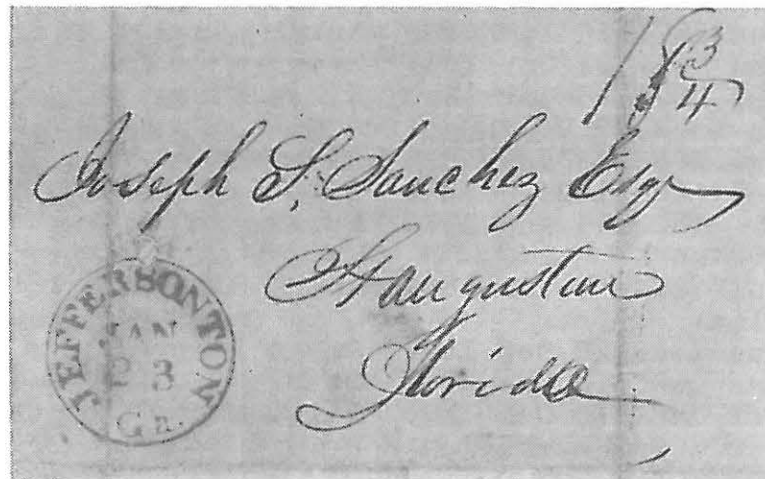 18 3/4
Joseph S. Sanchez Esqr
St Augustine
Florida
JEFFERSONTON
JAN
23
Ga.